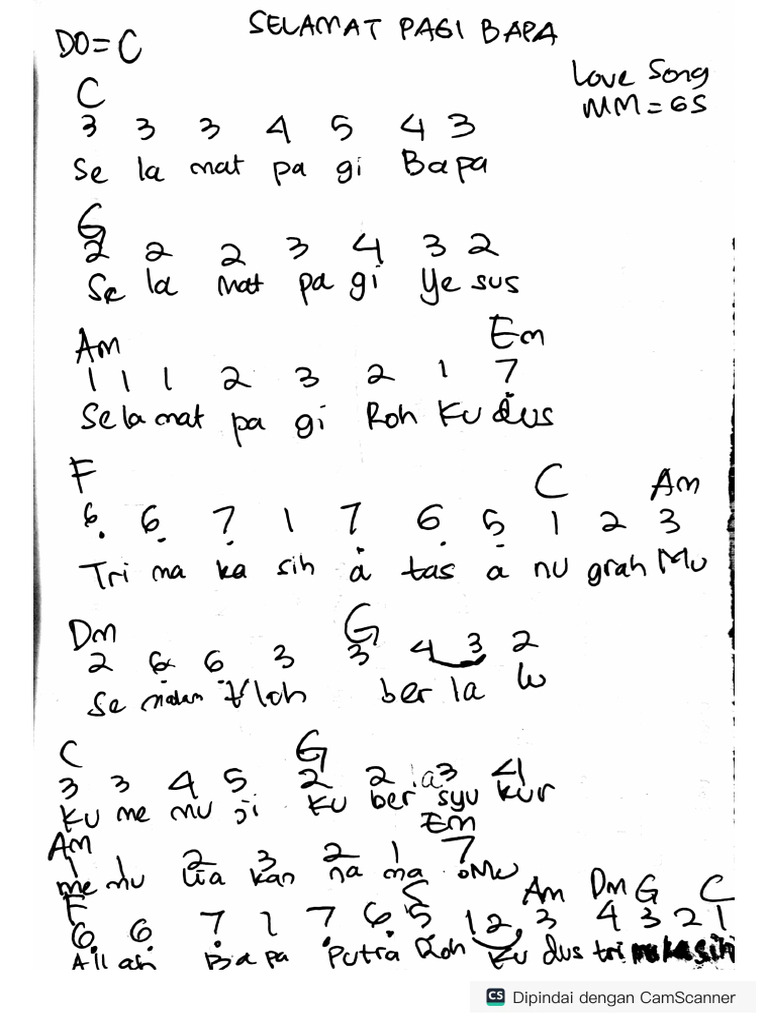 SELAMAT PAGI BAPA
DO = C
Love Song
MM = 65
C
3 3 3 4 5 4 3
Se la mat pa gi Bapa
G
2 2 2 3 4 3 2
Se la mat pa gi Ye sus
Am Em
1 1 1 2 3 2 1 7
Se la mat pa gi Roh Ku dus
F C Am
6 6 7 1 7 6 5 1 2 3
Tri ma ka sih a tas a nu grah Mu
Dm G
2 6 6 3 3 4 3 2
Se malam t'loh ber la lu
C G
3 3 4 5 2 2 3 4
Ku me mu ji Ku ber syu kur
Am Em
1 1 2 3 2 1 7
me mu lia kan na ma Mu
F C Am Dm G C
6 6 7 1 7 6 5 1 2 3 4 3 2 1
Allah Bapa Putra Roh Ku dus tri ma kasih
CS Dipindai dengan CamScanner